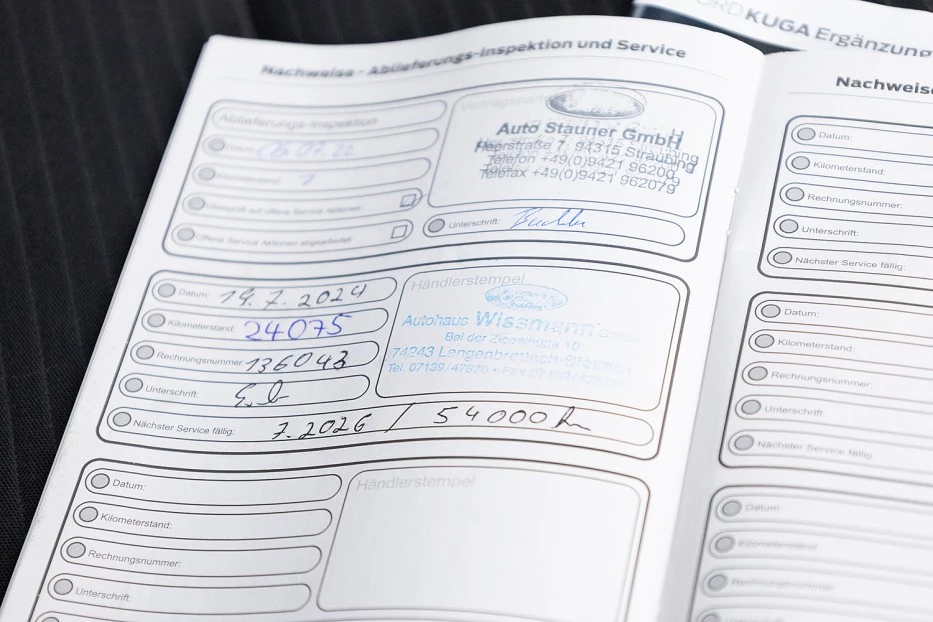 ORD KUGA Ergänzung
Nachweise - Ablieferungs-Inspektion und Service
Ablieferungs-Inspektion
7
Überprüft auf offene Service Aktionen
Offene Service Aktionen abgearbeitet
Auto Stauner GmbH
Heerstraße 7· 94315 Straubing
Telefon +49(0)9421 96200
Telefax +49(0)9421 962079
Unterschrift:
Datum: 19.7.2024
Kilometerstand: 24075
Rechnungsnummer: 136043
Unterschrift:
Nächster Service fällig: 7.2026 / 54000 km
Händlerstempel
Autohaus Wissmann GmbH
Bei der Ziegelhütte 10
74243 Langenbrettach
Tel. 07139/47870 • Fax
Datum:
Kilometerstand:
Rechnungsnummer:
Unterschrift:
Händlerstempel
Nachweise
Datum:
Kilometerstand:
Rechnungsnummer:
Unterschrift:
Nächster Service fällig:
Datum:
Kilometerstand:
Rechnungsnummer:
Unterschrift:
Nächster Service fällig:
Datum:
Kilometerstand:
Rechnungsnummer: